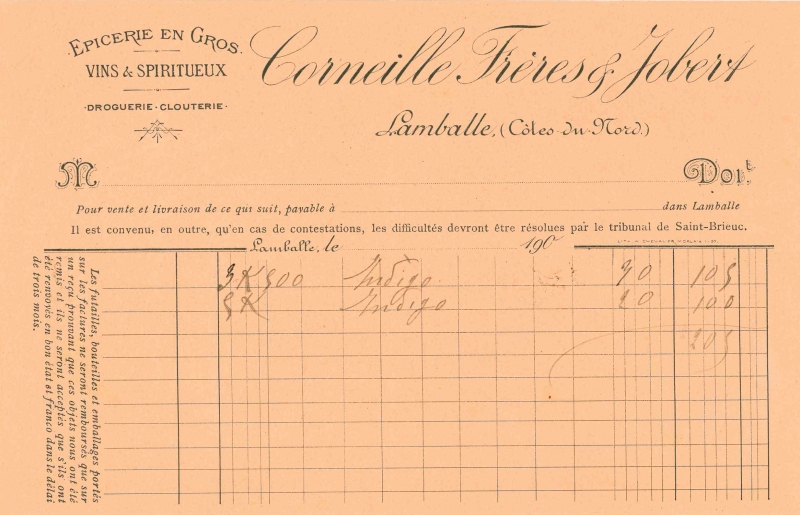 EPICERIE EN GROS.
VINS & SPIRITUEUX
·DROGUERIE-CLOUTERIE·
Corneille Frères & Jobert
Lamballe, (Côtes-du-Nord.)
M Doit
Pour vente et livraison de ce qui suit, payable à dans Lamballe
Il est convenu, en outre, qu'en cas de contestations, les difficultés devront être résolues par le tribunal de Saint-Brieuc.
Lamballe, le 190
3 K 500 Indigo 30 105
5 K Indigo 20 100
205
Les futailles, bouteilles et emballages portés
sur les factures ne seront remboursés que sur
un reçu prouvant que ces objets nous ont été
remis et ils ne seront acceptés que s'ils ont
été renvoyés en bon état et franco dans le délai
de trois mois.